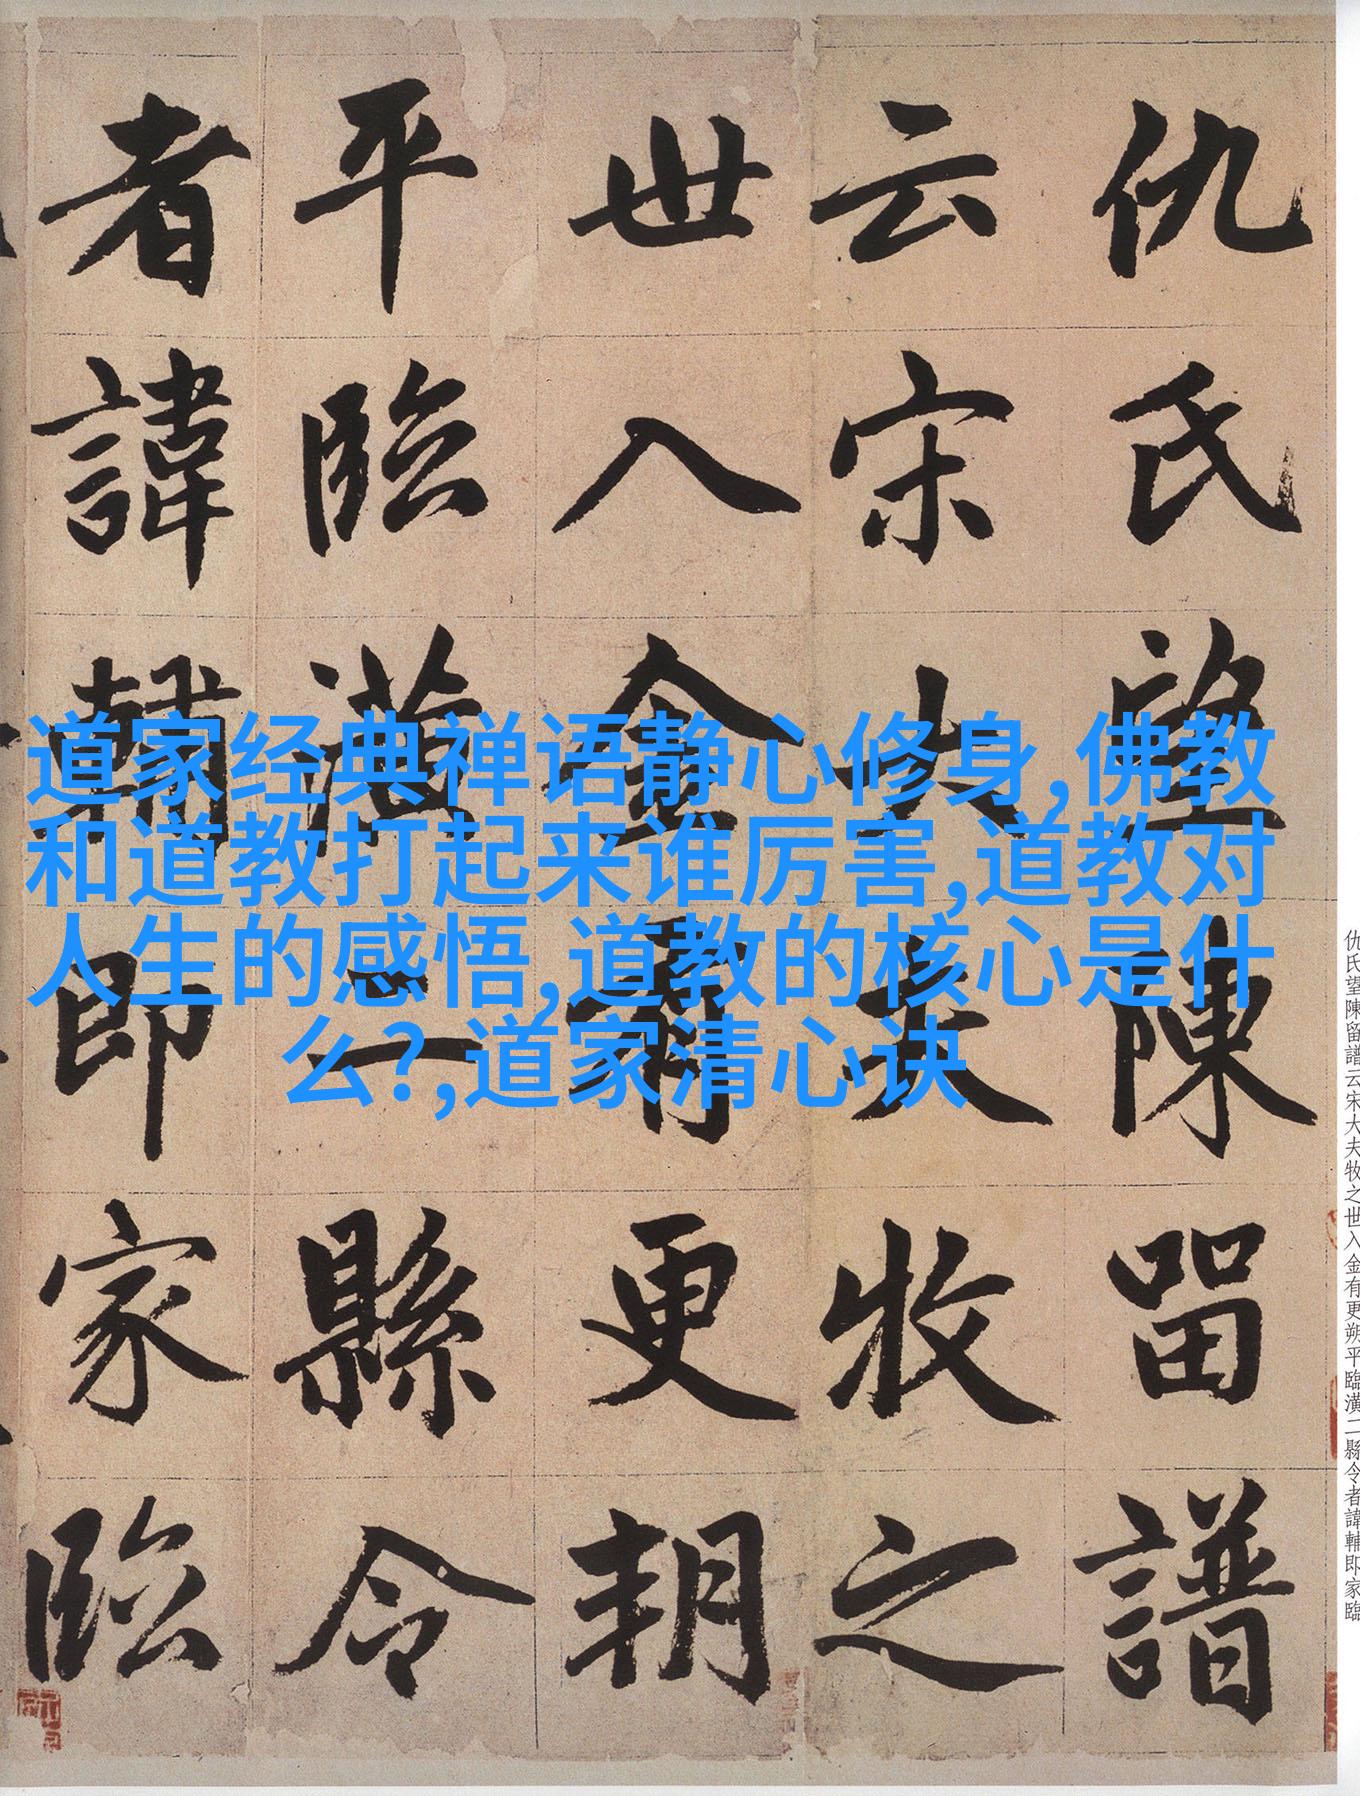 仇氏望陳留譜
云宋大夫牧之
世入金有更朔
平臨潢二縣令
者諱輔即家臨
道家经典禅语静心修身,佛教
和道教打起来谁厉害,道教对
人生的感悟,道教的核心是什
么?,道家清心诀
仇氏望陳留譜云宋大夫牧之世入金有更朔平臨潢二縣令者諱輔即家臨